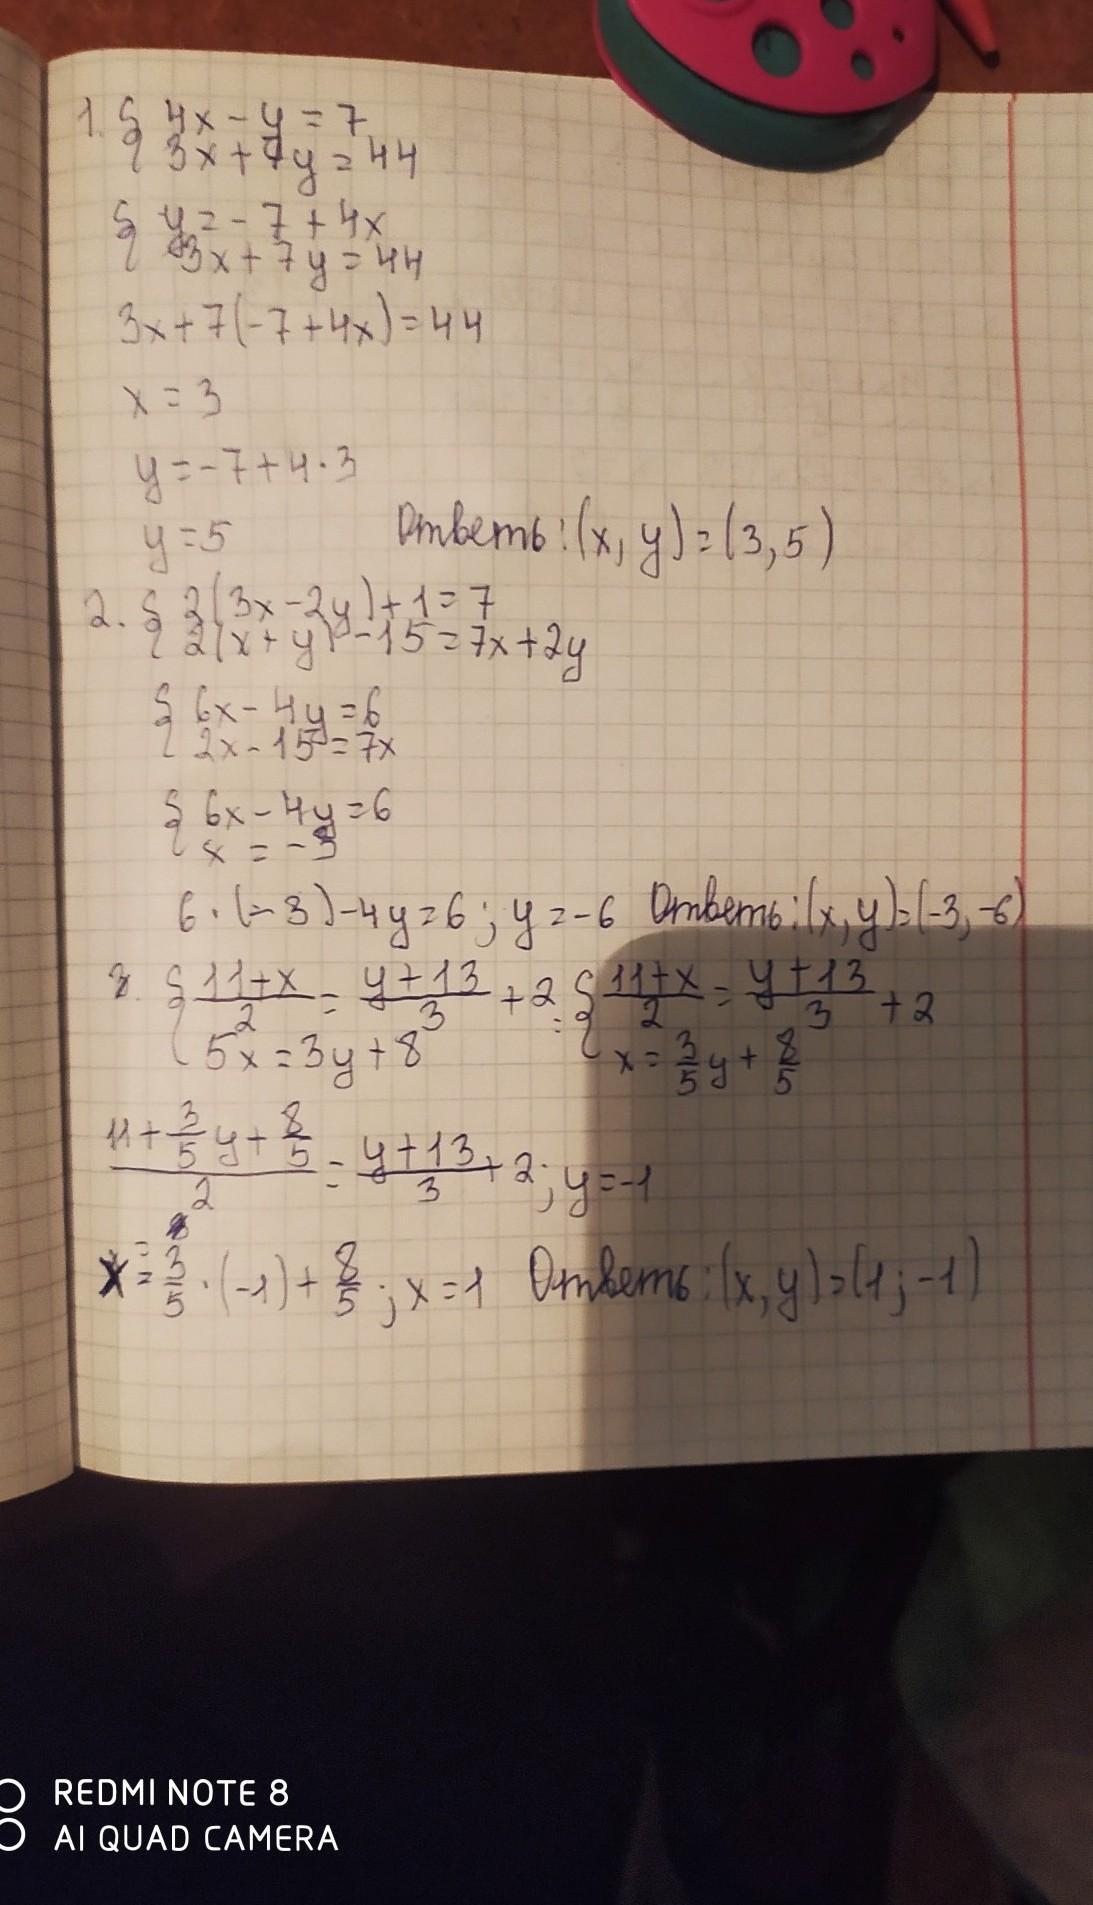 1. { 4x - y = 7
3x + 7y = 44
{ y = - 7 + 4x
3x + 7y = 44
3x + 7(-7 + 4x) = 44
x = 3
y = -7 + 4 · 3
y = 5 Ответь: (x, y) = (3, 5)
2. { 2(3x - 2y) + 1 = 7
2(x + y) - 15 = 7x + 2y
{ 6x - 4y = 6
2x - 15 = 7x
{ 6x - 4y = 6
x = -3
6 · (-3) - 4y = 6; y = -6 Ответь: (x, y) = (-3, -6)
3. { (11+x)/2 = (y+13)/3 + 2 = { (11+x)/2 = (y+13)/3 + 2
5x = 3y + 8 x = 3/5 y + 8/5
(11 + 3/5 y + 8/5)/2 = (y+13)/3 + 2; y = -1
x = 3/5 · (-1) + 8/5; x = 1 Ответь: (x, y) = (1; -1)
REDMI NOTE 8
AI QUAD CAMERA